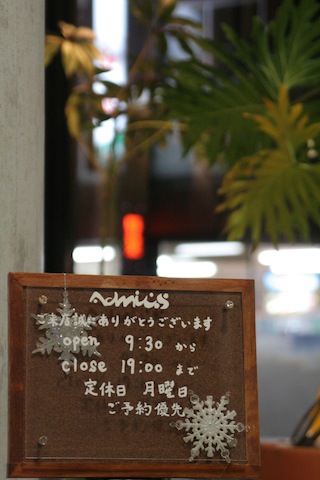 ご来店誠にありがとうございます
open 9:30 から
close 19:00 まで
定休日 月曜日
ご予約優先